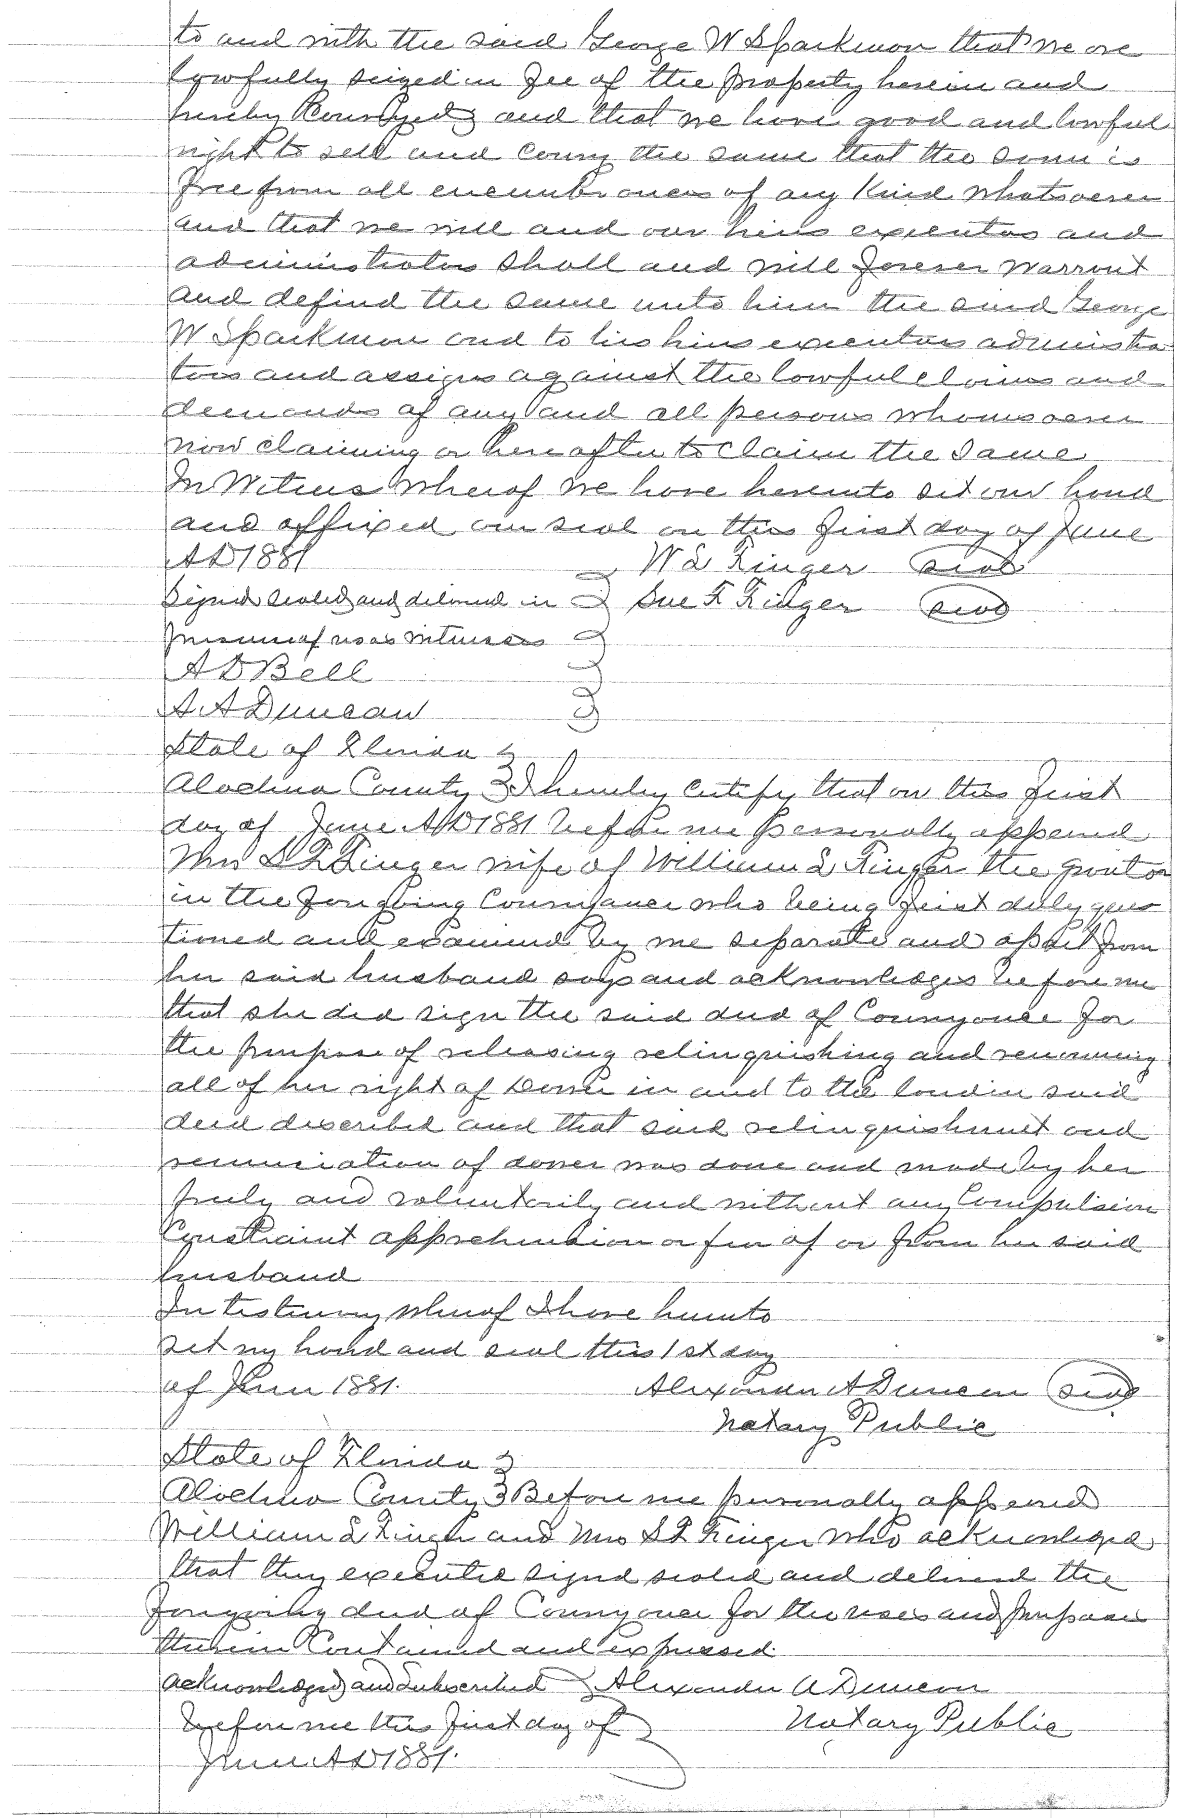 to and with the said George W Sparkman that we are
lawfully seized in fee of the property herein and
hereby Conveyed and that we have good and lawful
right to sell and Convey the same that the same is
free from all encumbrances of any Kind whatsoever
and that we will and our heirs executors and
administrators shall and will forever warrant
and defend the same unto him the said George
W Sparkman and to his heirs executors administra
tors and assigns against the lawful claims and
demands of any and all persons whomsoever
now claiming or hereafter to claim the same
In Witness Whereof we have hereunto set our hand
and affixed our seal on this first day of June
AD 1881 W L Finger seal
Signed sealed and delivered in Sue F Finger seal
presence of us as witnesses
A D Bell
A A Duncan
State of Florida
Alachua County I hereby certify that on this first
day of June AD 1881 before me personally appeared
Mrs S F Finger wife of William L Finger the grantor
in the foregoing Conveyance who being first duly ques
tioned and examined by me separate and apart from
her said husband says and acknowledges before me
that she did sign the said deed of Conveyance for
the purpose of releasing relinquishing and renouncing
all of her right of Dower in and to the land in said
deed described and that said relinquishment and
renunciation of dower was done and made by her
freely and voluntarily and without any Compulsion
Constraint apprehension or fear of or from her said
husband
In testimony whereof I have hereunto
set my hand and seal this 1st day
of June 1881. Alexander A Duncan seal
Notary Public
State of Florida
Alachua County Before me personally appeared
William L Finger and Mrs S F Finger who acknowledged
that they executed signed sealed and delivered the
foregoing deed of Conveyance for the uses and purposes
therein Contained and expressed.
acknowledged and subscribed Alexander A Duncan
before me this first day of Notary Public
June AD 1881.